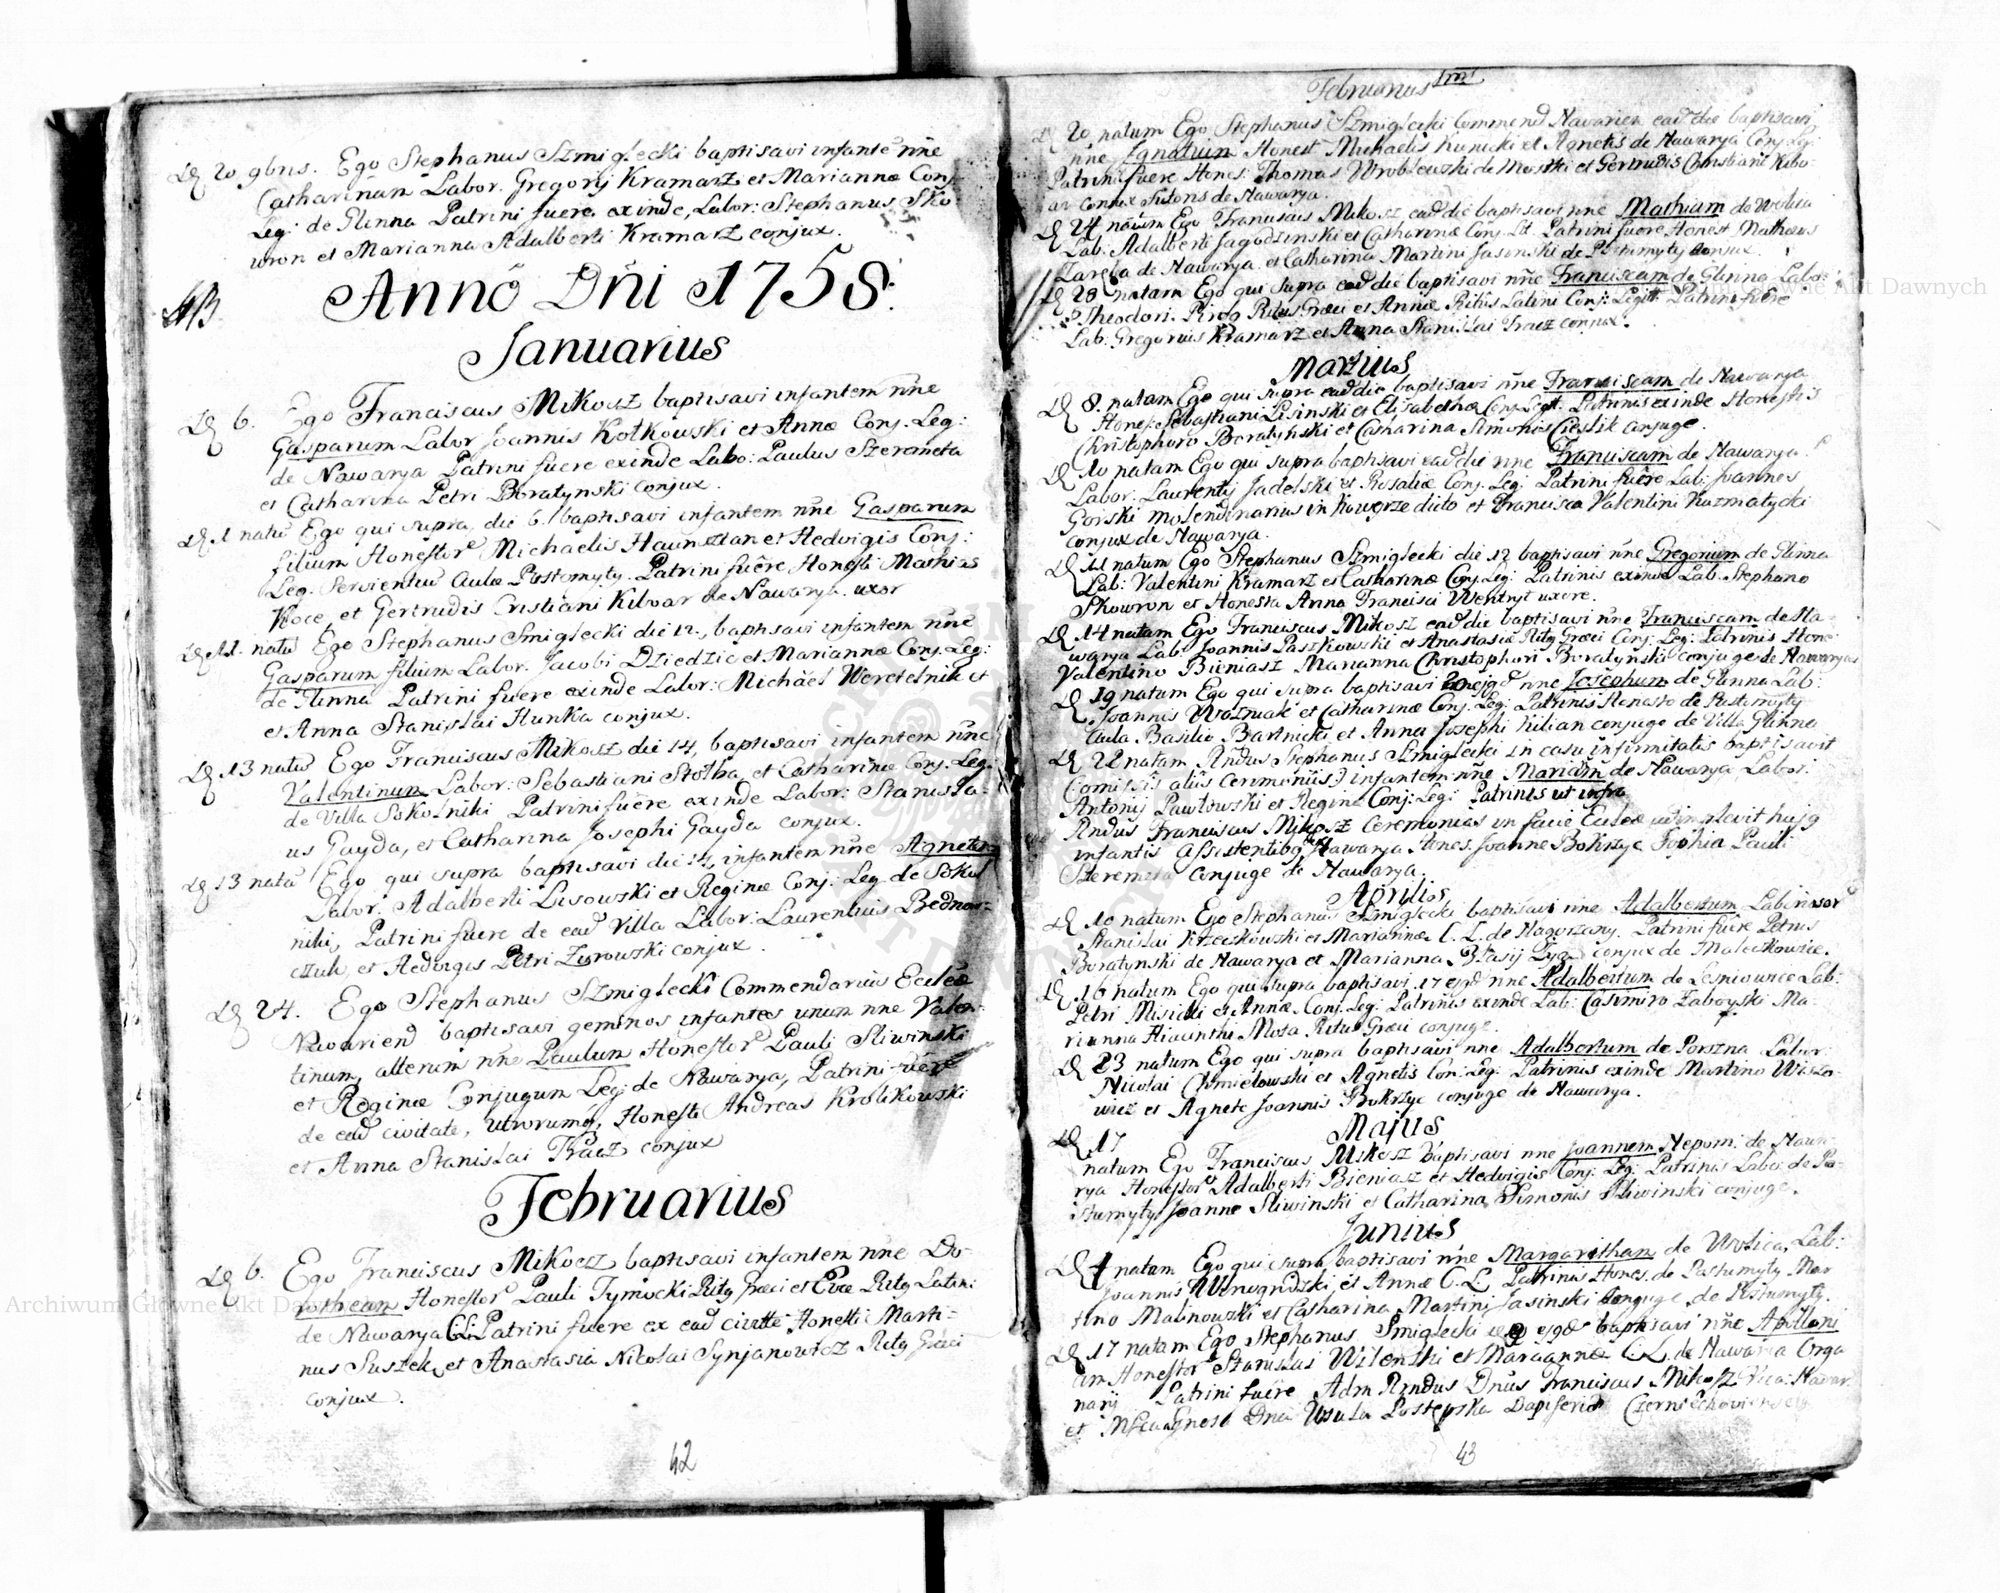 20 9bris. Ego Stephanus Szmiglecki baptisavi infantē nñe
Catharinam Labor. Gregorij Kramarz et Mariannæ Conj.
Leg: de Glinna Patrini fuere exinde, Labor: Stephanus Sko
wron et Marianna Adalberti Kramarz conjux.
Annō Dñi 1758:
Januarius
6. Ego Franciscus Mikosz baptisavi infantem nñe
Gasparum Labor Joannis Kotkowski et Annæ Conj. Leg:
de Nawarya Patrini fuere exinde Labo: Paulus Szeremeta
et Catharina Petri Boratynski conjux.
1 natū Ego qui supra die 6. baptisavi infantem nñe Gasparum
filium Honestor Michaelis Haunsztan et Hedvigis Conj:
Leg. Servientiū Aulæ Pustomyty. Patrini fuēre Honesti Mathias
Koce, et Gertrudis Cristiani Kilwar de Nawarya. uxor
11. natū Ego Stephanus Smiglecki die 12., baptisavi infantem nñe
Gasparum filium Labor. Jacobi Dziedzic et Mariannæ Conj. Leg:
de Glinna Patrini fuere exinde Labor: Michael Weretelnik et
et Anna Stanislai Hunka conjux.
13 natū Ego Franciscus Mikosz die 14, baptisavi infantem nñe
Valentinum Labor: Sebastiani Stotba et Catharinæ Conj. Leg.
de Villa Sokolniki Patrini fuēre exinde Labor: Stanisla-
us Gayda, et Catharina Josephi Gayda conjux.
13 natā Ego qui supra baptisavi die 14, infantem nñe Agnetem
Labor: Adalberti Lisowski et Reginæ Conj: Leg. de Sokol
niki, Patrini fuere de eadē Villa Labor: Laurentius Bednar-
czuk, et Hedvigis Petri Zurowski conjux.
24. Ego Stephanus Szmiglecki Commendarius Ecclēæ
Nawarien baptisavi geminos infantes unum nne Valen-
tinum, alterum nñe Paulum Honestor Pauli Sliwinski
et Reginæ Conjugum Leg: de Nawarya, Patrini
de eadē civitate, utrorumq, Honesti Andreas Krolikowski
et Anna Stanislai Tracz conjux
Februarius
6. Ego Franciscus Mikosz baptisavi infantem nñe Do-
rotheam Honestor Pauli Tymocki Ritq Græci et Evæ Ritq Latini
de Nawarya C:L: Patrini fuere ex eadē civitte Honesti Marti-
nus Suszek, et Anastasia Nikolai Synjanowicz Ritq Græci
conjux.
42
Februarius
20 natum Ego Stephanus Szmiglecki Commend Nawarien eadē die baptisavi
nñe Ignatium Honest Michaelis Kunicki et Agnetis de Nawarya Conj Leg:
Patrini fuere Hones: Thomas Wroblewski de Mostki et Gertrudis Christiani Kibo-
ar conjux Sutoris de Nawarya.
24 natum Ego Franciscus Mikosz eadē die baptisavi nñe Mathiam de Wolica
Lab: Adalberti Jagodzinski et Catharinæ Conj. Lt. Patrini fuere Honest Matheus
Zaręba de Nawarya et Catharina Martini Jasinski de Pustomyty conjux.
28 natam Ego qui supra eadē die baptisavi nñe Franciscam de Glinna Labor:
Theodori Pirog Ritus Græci et Annæ Ritus Latini Conj: Legit: Patrini fuēre
Lab: Gregorius Kramarz et Anna Stanislai Tracz conjux.
Martius
8. natam Ego qui supra eadē die baptisavi nñe Franciscam de Nawarya
Hones: Sebastiani Lisinski et Elisabethæ Conj. Legit. Patrinis exinde Honestis
Christophoro Boratynski et Catharina Simonis Cieslik conjuge.
10 natam Ego qui supra baptisavi eadē die nñe Franciscam de Nawarya
Labor: Laurentij Jadelski et Rosaliæ Conj. Leg: Patrini fuēre Lab: Joannes
Gorski molendinarius in Kowerze dicto et Francisca Valentini Kuzmatycki
conjux de Nawarya.
11 natum Ego Stephanus Szmiglecki die 12 baptisavi nñe Gregorium de Glinna
Lab: Valentini Kramarz et Catharinæ Conj: Leg: Patrinis exinde Lab. Stephano
Skowron et Honesta Anna Francisci Wentryt uxore.
14 natam Ego Franciscus Mikosz eadē die baptisavi nñe Franciscam de Na-
warya Lab: Joannis Paszkowski et Anastasiæ Ritq Græci Conj: Leg: Patrinis Hone:
Valentino Bieniasz Marianna Christophori Boratynski conjuge de Nawarya
19 natum Ego qui supra baptisavi nñe Josephum de Glinna Lab:
Joannis Wozniak et Catharinæ Conj. Leg: Patrinis Honesto de Pustomyty
Aula Basilio Bartnicki et Anna Josephi Kilian conjuge de Villa Glinna
22 natam Rndus Stephanus Szmiglecki in casu infirmitatis baptisavit
(omissis aliis ceremoniis) infantem nñe Mariam de Nawarya Labor:
Antonij Pawlowski et Reginæ Conj: Leg: Patrinis ut infra
Rndus Franciscus Mikosz Ceremonias in facie Ecclæ adimplevit hujq
infantis Assistentibq de Nawarya Hones. Joanne Bokrzyc Sophia Pauli
Szeremeta conjuge de Nawarya.
Aprilis
10 natum Ego Stephanus Szmiglecki baptisavi nñe Adalbertum Laboriosor
Stanislai Krzeczkowski et Mariannæ C. L. de Nagorzany. Patrini fuēre Petrus
Boratynski de Nawarya et Marianna Blasij conjux de Maleczkowice.
16 natum Ego qui supra baptisavi 17 ejqd nñe Adalbertum de Lesniowice Lab:
Petri Misicki et Annæ Conj. Leg: Patrinis exinde Lab: Casimiro Zaboyski Ma-
rianna Hiacinthi Mota Ritus Græci conjuge.
23 natum Ego qui supra baptisavi nñe Adalbertum de Porszna Labor:
Nicolai Chmielowski et Agnetis Con: Leg: Patrinis exinde Martino
wicz et Agnete Joannis Bokrzyc conjuge de Nawarya.
Majus
17
natum Ego Franciscus Mikosz baptisavi nñe Joannem Nepom: de Nawa-
rya Honestor Adalberti Bieniasz et Hedvigis Conj: Leg: Patrinis Labo: de Pu-
stumyty Joanne Sliwinski et Catharina Simonis Sliwinski conjuge.
Junius
4 natam Ego qui supra baptisavi nñe Margaritham de Wolica, Lab:
Joannis Winogrodzki et Annæ C. L. Patrinis Hones. de Pustumyty Mar
tino Malinowski et Catharina Martini Jasinski conjuge de Pustumyty.
17 natam Ego Stephanus Smiglecki ejqd baptisavi nñe Apolloni
am Honestor Stanislai Wilenski et Mariannæ C. L. de Nawaria Orga
narij Patrini fuēre Adm Rndus Dnus Franciscus Mikosz Vica: Nawar.
et Mca Gnosa Dna Ursula Postepska Dapiferid
43